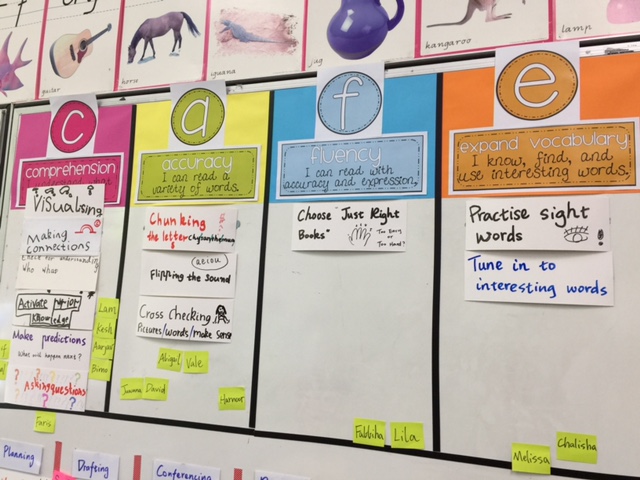 guitar
horse
iguana
jug
kangaroo
lamp
c
comprehension
Visualising
Making
Connections
Check for understanding
Who what
Activate prior
Knowledge
Make predictions
What will happen next?
Asking questions
Lam
Kesh
Birno
Faris
a
accuracy
I can read a
variety of words.
Chunking
the letter chrysanthemum
aeiou
Flipping the sound
Cross Checking
Pictures/words/make sense
Abigail
Vale
Joanna
David
Harnoor
f
fluency
I can read with
accuracy and expression.
Choose "Just Right
Books"
Too Easy or
Too Hard?
Fabbiha
Lila
e
expand vocabulary
I know, find, and
use interesting words.
Practise sight
words
Tune in to
interesting words
Melissa
Chalisha
Planning
Drafting
Conferencing